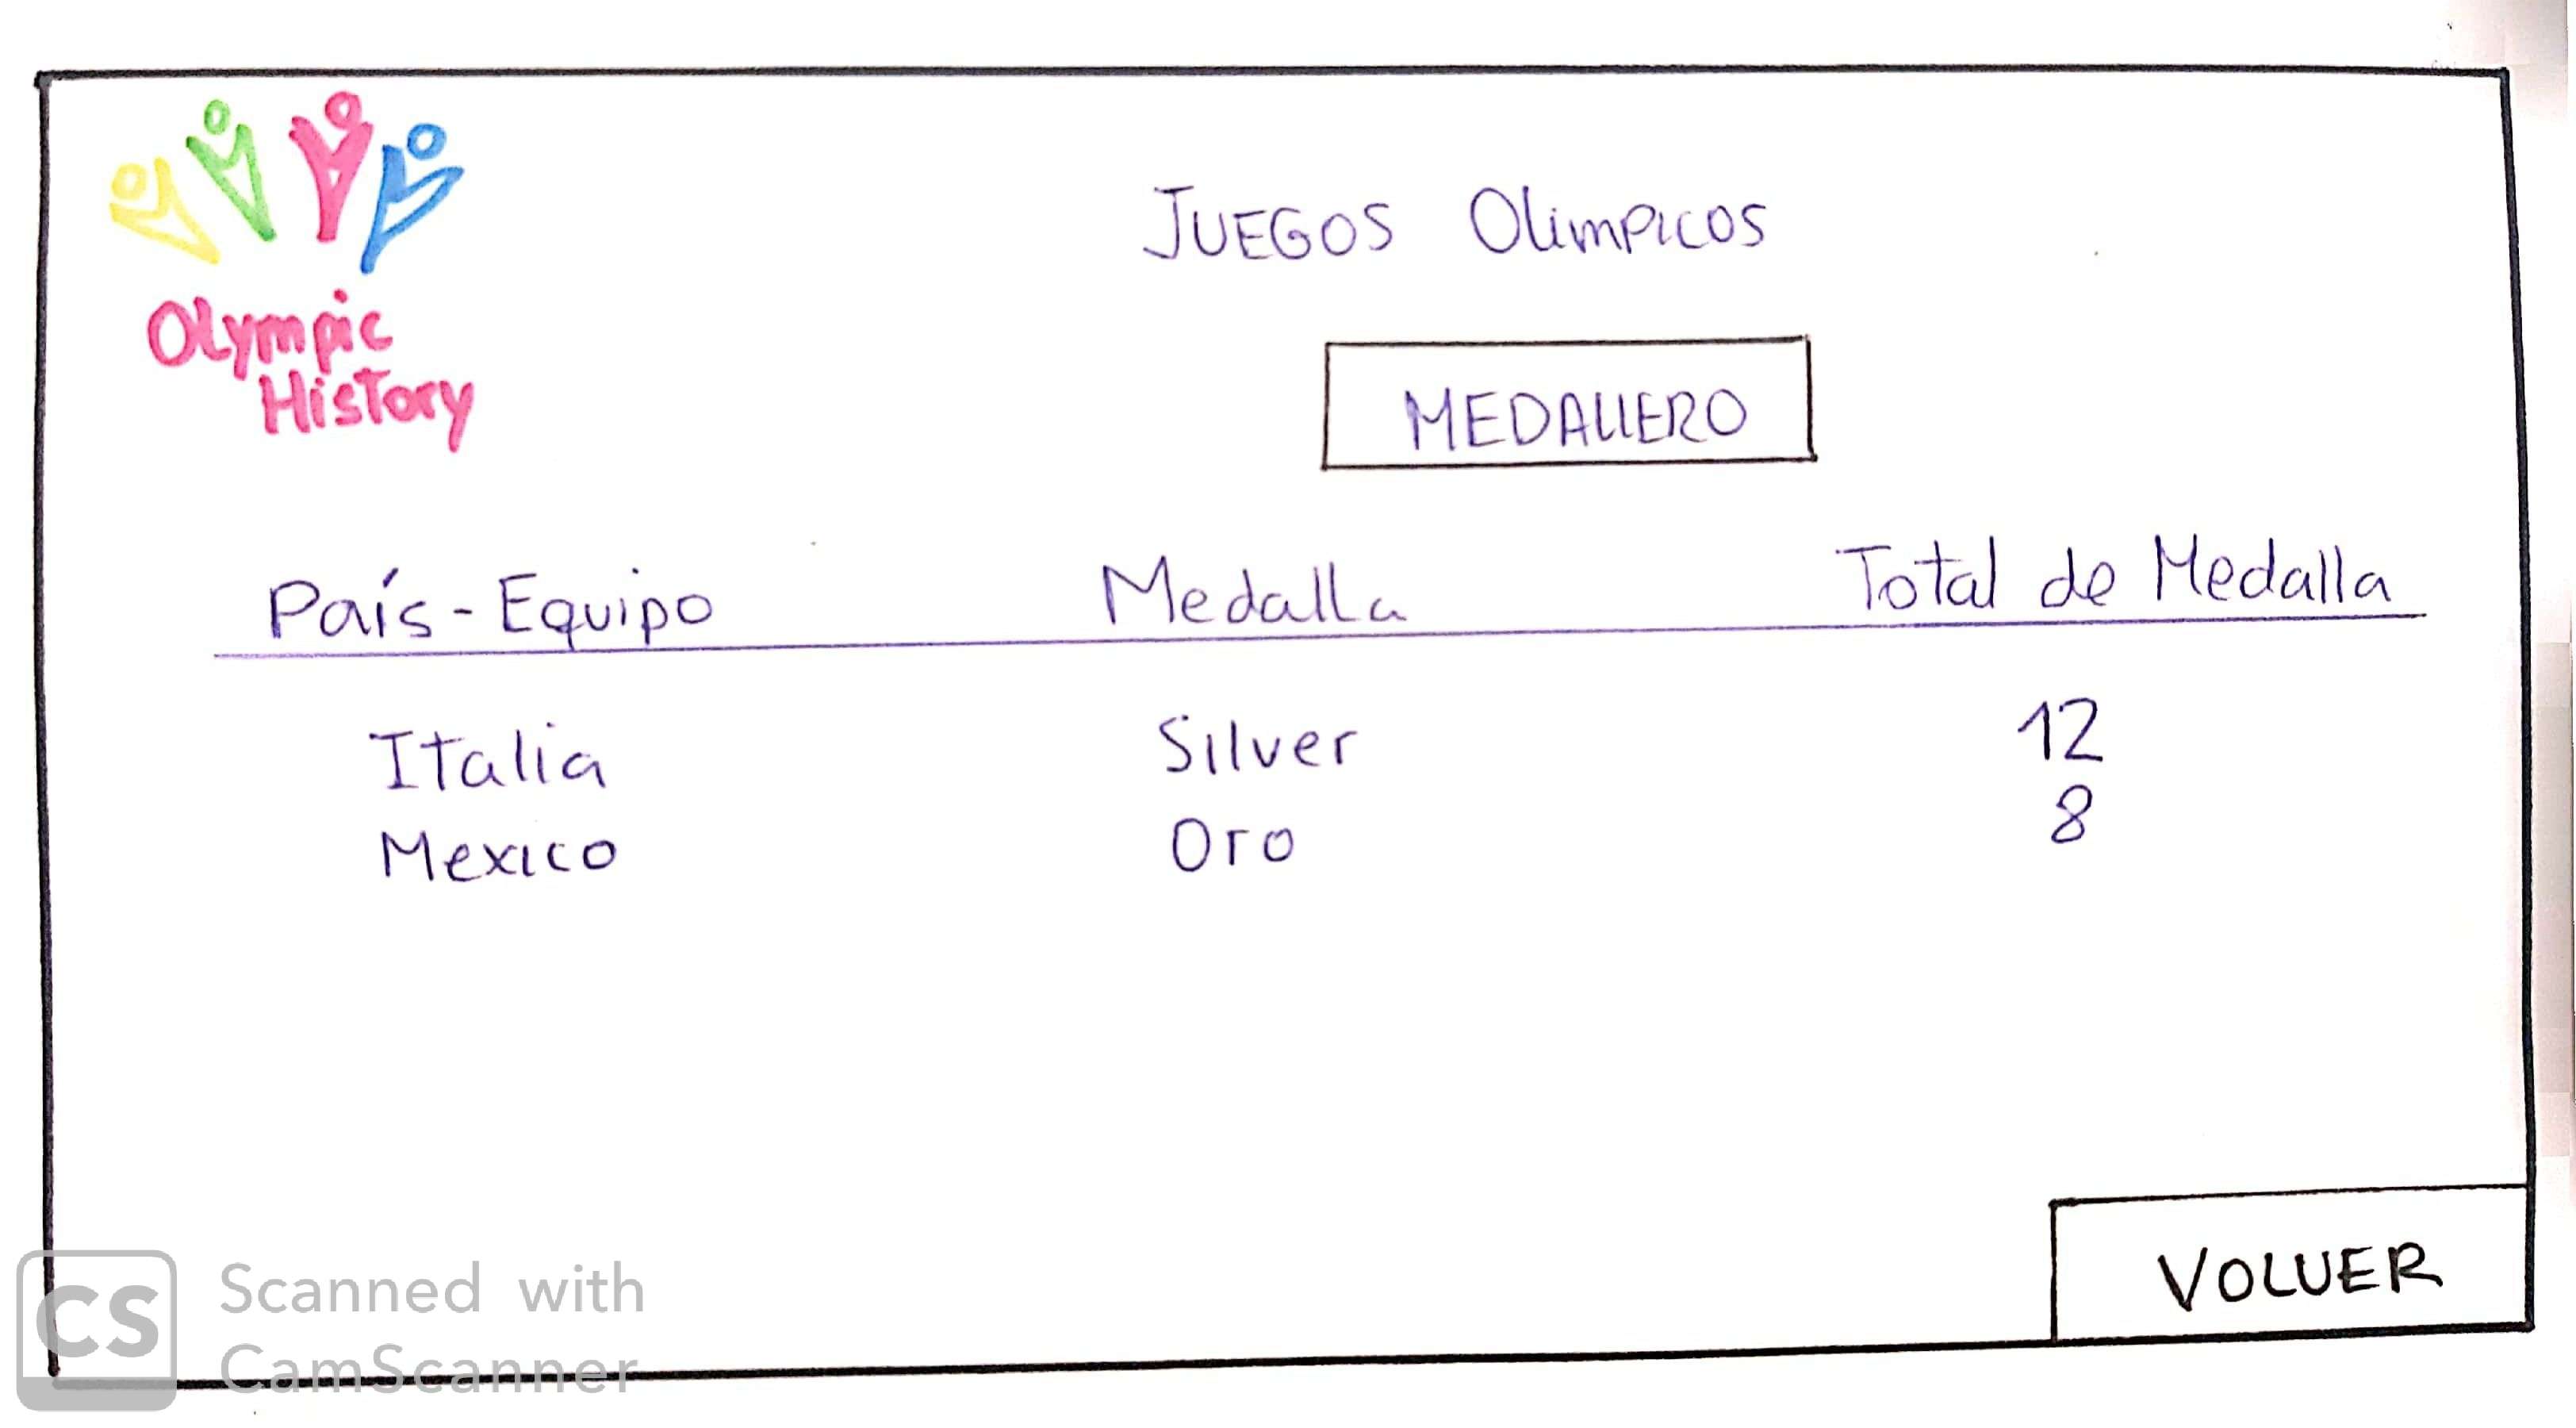 Olympic
History
JUEGOS OlimPicos
MEDALLERO
País-Equipo Medalla Total de Medalla
Italia Silver 12
Mexico Oro 8
VOLVER
CS Scanned with
CamScanner